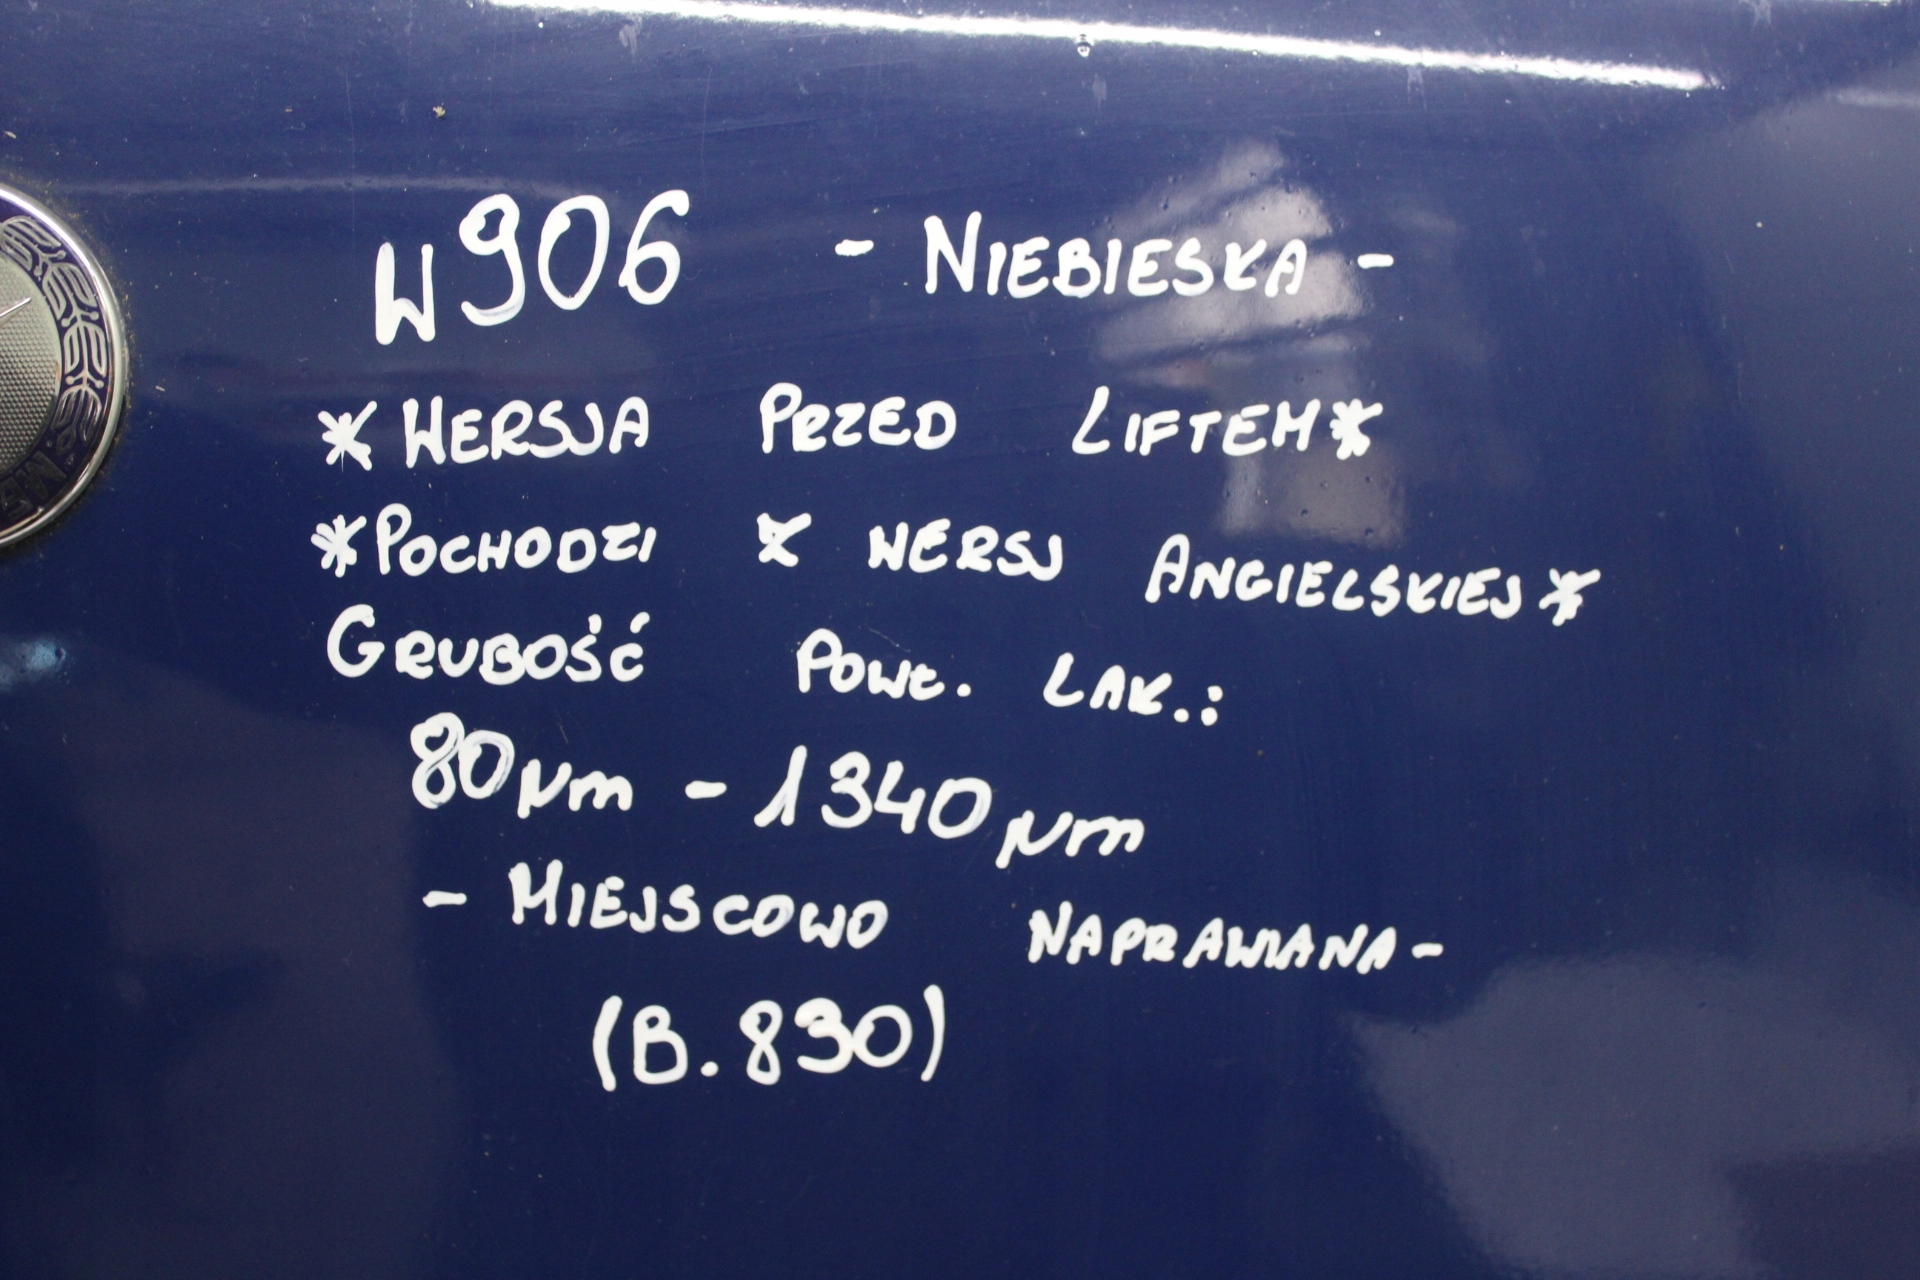 W906 - NIEBIESKA -
*WERSJA PRZED LIFTEM*
*POCHODZI Z WERSJ ANGIELSKIEJ*
GRUBOŚĆ POWŁ. LAK.:
80µm - 1340µm
- MIEJSCOWO NAPRAWIANA -
(B.830)